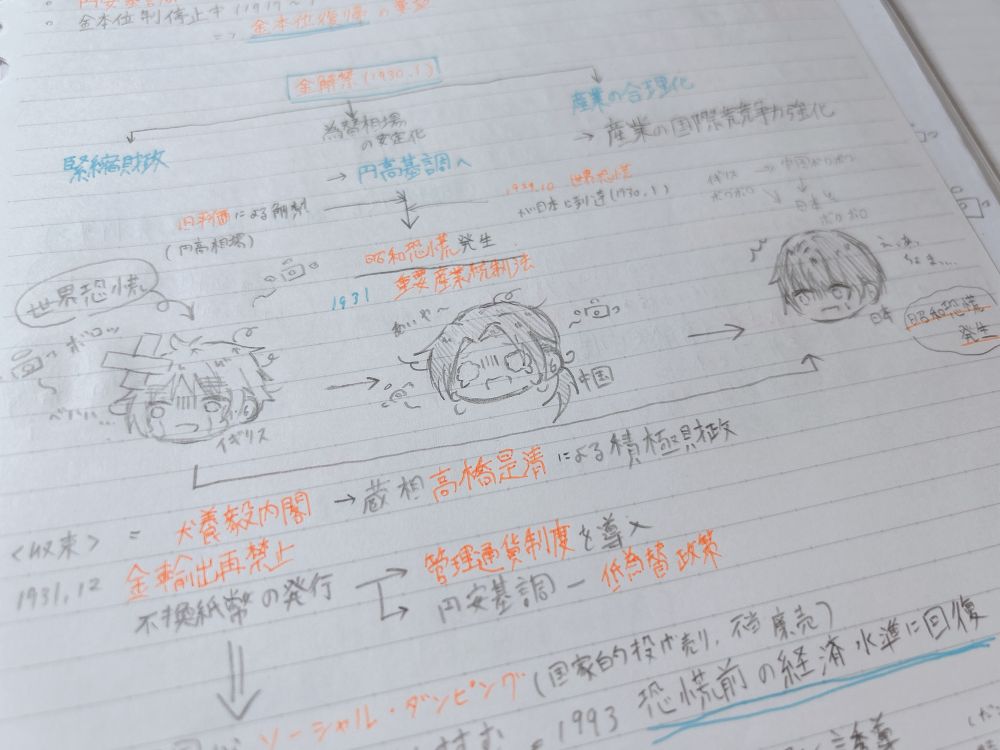 金本位制停止中(1917~
⇒ 金本位復帰の要望
金解禁(1930.1)
緊縮財政
為替相場の安定化
→ 円高基調へ
産業の合理化
→ 産業の国際競争力強化
旧平価による解禁
(円高相場)
1929.10 世界恐慌
が日本に到達(1930.1)
イギリス → 中国
ボロボロ
日本も
ボロボロ
昭和恐慌発生
1931 重要産業統制法
世界恐慌
ボロッ
イギリス
あいや~
中国
日本
昭和恐慌
発生
<収束> = 犬養毅内閣 → 蔵相高橋是清による積極財政
1931.12 金輸出再禁止
不換紙幣の発行
→ 管理通貨制度を導入
円安基調 ー 低為替政策
ソーシャル・ダンピング(国家的投げ売り,不当廉売)
= 1993 恐慌前の経済水準に回復